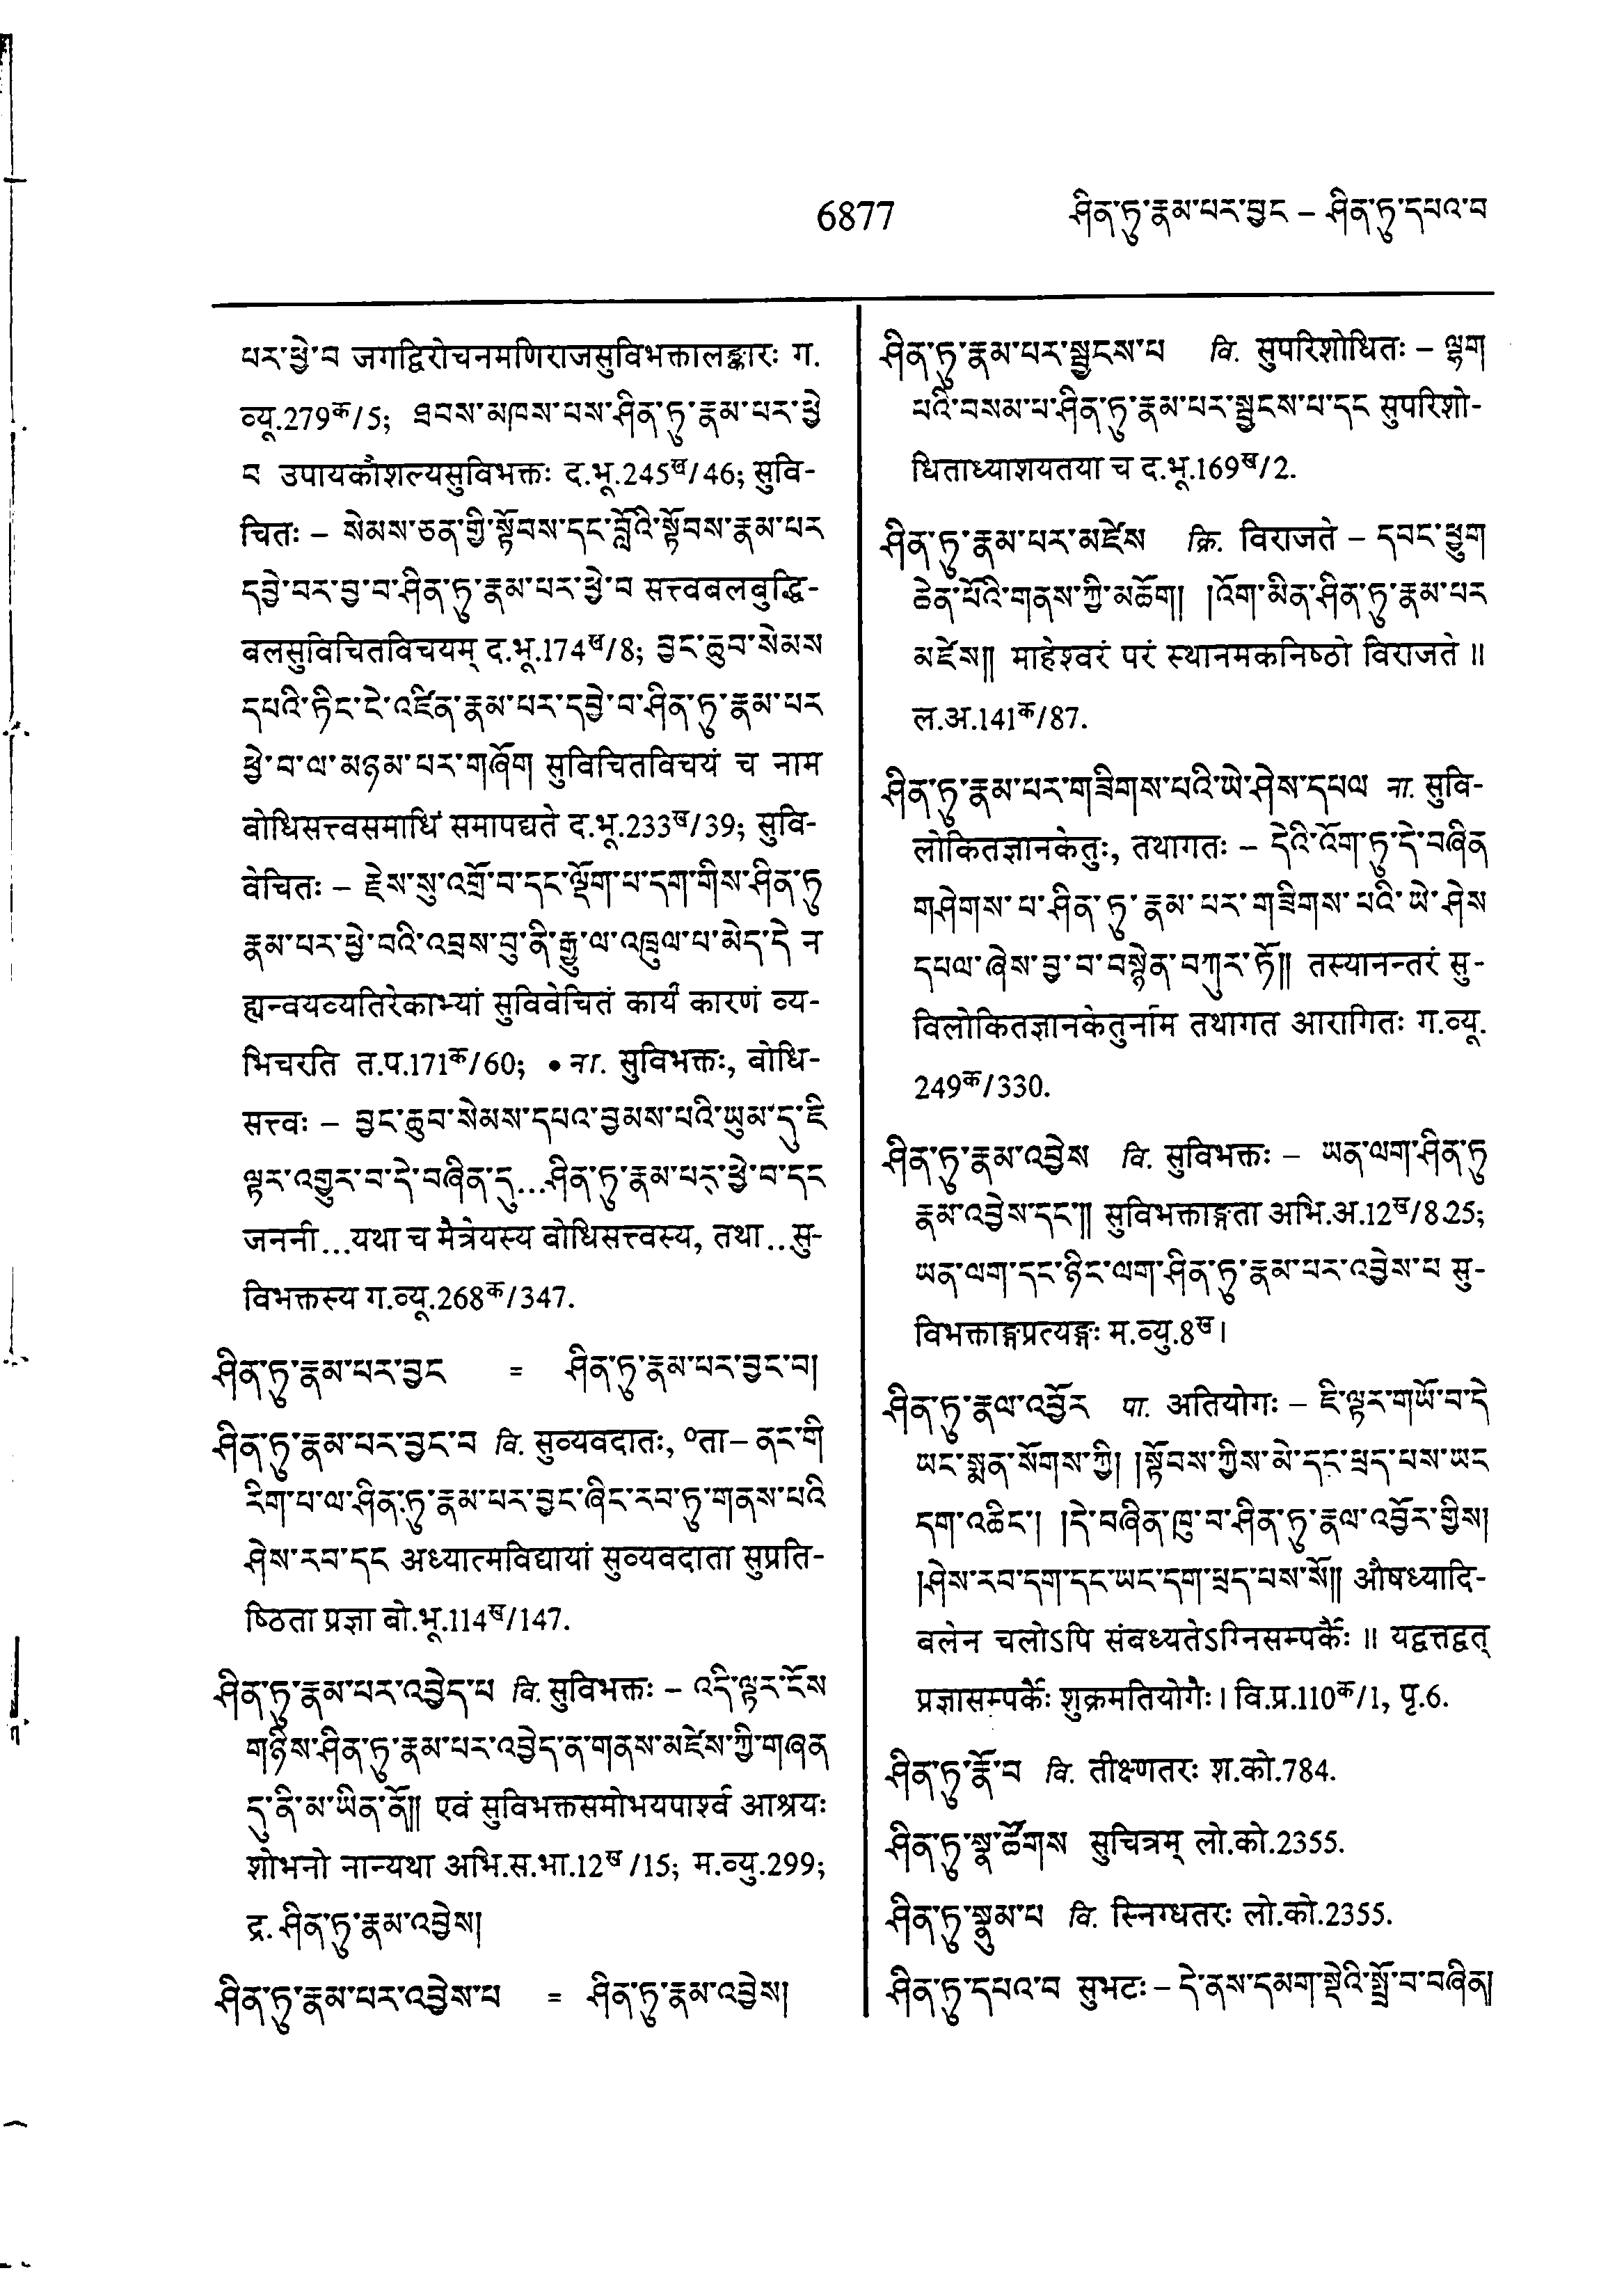 6877
ཤིན་ཏུ་རྣམ་པར་བྱང – ཤིན་ཏུ་དཔའ་བ
པར་ཕྱེ་བ जगद्विरोचनमणिराजसुविभक्तालङ्कारः ग.
व्यू.279क/5; ཐབས་མཁས་པས་ཤིན་ཏུ་རྣམ་པར་ཕྱེ
བ उपायकौशल्यसुविभक्तः द.भू.245ख/46; सुवि-
चितः – སེམས་ཅན་གྱི་སྟོབས་དང་བློའི་སྟོབས་རྣམ་པར
དབྱེ་བར་བྱ་བ་ཤིན་ཏུ་རྣམ་པར་ཕྱེ་བ सत्त्वबलबुद्धि-
बलसुविचितविचयम् द.भू.174ख/8; བྱང་ཆུབ་སེམས
དཔའི་ཏིང་ངེ་འཛིན་རྣམ་པར་དབྱེ་བ་ཤིན་ཏུ་རྣམ་པར
ཕྱེ་བ་ལ་མཉམ་པར་གཞོག सुविचितविचयं च नाम
बोधिसत्त्वसमाधिं समापद्यते द.भू.233ख/39; सुवि-
वेचितः – རྗེས་སུ་འགྲོ་བ་དང་ལྡོག་པ་དག་གིས་ཤིན་ཏུ
རྣམ་པར་ཕྱེ་བའི་འབྲས་བུ་ནི་རྒྱུ་ལ་འཁྲུལ་པ་མེད་དེ न
ह्यन्वयव्यतिरेकाभ्यां सुविवेचितं कार्यं कारणं व्य-
भिचरति त.प.171क/60; • ना. सुविभक्तः, बोधि-
सत्त्वः – བྱང་ཆུབ་སེམས་དཔའ་བྱམས་པའི་ཡུམ་དུ་ཇི
ལྟར་འགྱུར་བ་དེ་བཞིན་དུ...ཤིན་ཏུ་རྣམ་པར་ཕྱེ་བ་དང
जननी...यथा च मैत्रेयस्य बोधिसत्त्वस्य, तथा...सु-
विभक्तस्य ग.व्यू.268क/347.
ཤིན་ཏུ་རྣམ་པར་བྱང = ཤིན་ཏུ་རྣམ་པར་བྱང་བ།
ཤིན་ཏུ་རྣམ་པར་བྱང་བ वि. सुव्यवदातः, ०ता– ནང་གི
རིག་པ་ལ་ཤིན་ཏུ་རྣམ་པར་བྱང་ཞིང་རབ་ཏུ་གནས་པའི
ཤེས་རབ་དང अध्यात्मविद्यायां सुव्यवदाता सुप्रति-
ष्ठिता प्रज्ञा बो.भू.114ख/147.
ཤིན་ཏུ་རྣམ་པར་འབྱེད་པ वि. सुविभक्तः – འདི་ལྟར་ངོས
གཉིས་ཤིན་ཏུ་རྣམ་པར་འབྱེད་ན་གནས་མཛེས་ཀྱི་གཞན
དུ་ནི་མ་ཡིན་ནོ།། एवं सुविभक्तसमोभयपार्श्व आश्रयः
शोभनो नान्यथा अभि.स.भा.12ख/15; म.व्यु.299;
द्र. ཤིན་ཏུ་རྣམ་འབྱེས།
ཤིན་ཏུ་རྣམ་པར་འབྱེས་པ = ཤིན་ཏུ་རྣམ་འབྱེས།
ཤིན་ཏུ་རྣམ་པར་སྦྱངས་པ वि. सुपरिशोधितः – ལྷག
པའི་བསམ་པ་ཤིན་ཏུ་རྣམ་པར་སྦྱངས་པ་དང सुपरिशो-
धिताध्याशयतया च द.भू.169ख/2.
ཤིན་ཏུ་རྣམ་པར་མཛེས क्रि. विराजते – དབང་ཕྱུག
ཆེན་པོའི་གནས་ཀྱི་མཆོག། །འོག་མིན་ཤིན་ཏུ་རྣམ་པར
མཛེས།། माहेश्वरं परं स्थानमकनिष्ठो विराजते ॥
ल.अ.141क/87.
ཤིན་ཏུ་རྣམ་པར་གཟིགས་པའི་ཡེ་ཤེས་དཔལ ना. सुवि-
लोकितज्ञानकेतुः, तथागतः – དེའི་འོག་ཏུ་དེ་བཞིན
གཤེགས་པ་ཤིན་ཏུ་རྣམ་པར་གཟིགས་པའི་ཡེ་ཤེས
དཔལ་ཞེས་བྱ་བ་བསྙེན་བཀུར་ཏོ།། तस्यानन्तरं सु-
विलोकितज्ञानकेतुर्नाम तथागत आरागितः ग.व्यू.
249क/330.
ཤིན་ཏུ་རྣམ་འབྱེས वि. सुविभक्तः – ཡན་ལག་ཤིན་ཏུ
རྣམ་འབྱེས་དང་།། सुविभक्ताङ्गता अभि.अ.12ख/8.25;
ཡན་ལག་དང་ཉིང་ལག་ཤིན་ཏུ་རྣམ་པར་འབྱེས་པ सु-
विभक्ताङ्गप्रत्यङ्गः म.व्यु.8ख।
ཤིན་ཏུ་རྣལ་འབྱོར पा. अतियोगः – ཇི་ལྟར་གཡོ་བ་དེ
ཡང་སྨན་སོགས་ཀྱི། །སྟོབས་ཀྱིས་མེ་དང་ཕྲད་པས་ཡང
དག་འཆིང་། །དེ་བཞིན་ཁུ་བ་ཤིན་ཏུ་རྣལ་འབྱོར་གྱིས།
།ཤེས་རབ་དག་དང་ཡང་དག་ཕྲད་པས་སོ།། औषध्यादि-
बलेन चलोऽपि संबध्यतेऽग्निसम्पर्कैः ॥ यद्वत्तद्वत्
प्रज्ञासम्पर्कैः शुक्रमतियोगैः। वि.प्र.110क/1, पृ.6.
ཤིན་ཏུ་རྣོ་བ वि. तीक्ष्णतरः श.को.784.
ཤིན་ཏུ་སྣ་ཚོགས सुचित्रम् लो.को.2355.
ཤིན་ཏུ་སྣུམ་པ वि. स्निग्धतरः लो.को.2355.
ཤིན་ཏུ་དཔའ་བ सुभटः – དེ་ནས་དམག་སྡེའི་སྤྲོ་བ་བཞིན།